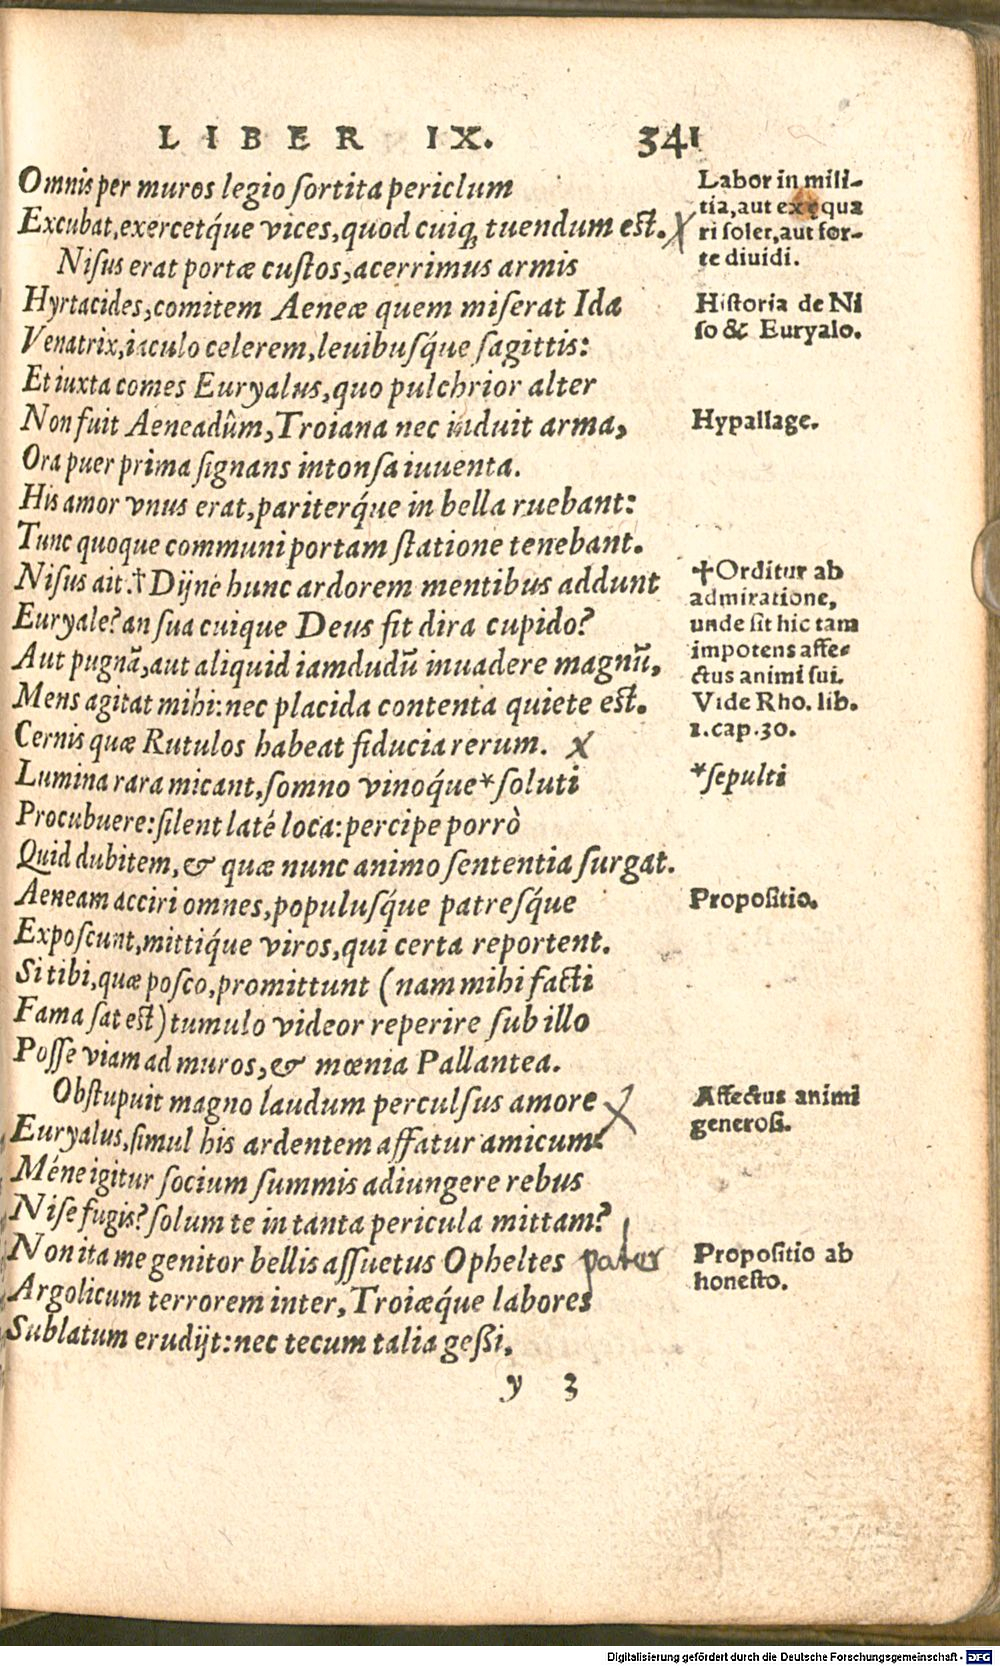 LIBER IX. 341
Omnis per muros legio sortita periclum
Excubat, exercetq́ue vices, quod cuiq; tuendum est. X
Nisus erat portæ custos, acerrimus armis
Hyrtacides, comitem Aeneæ quem miserat Ida
Venatrix, iaculo celerem, leuibusq́ue sagittis:
Et iuxta comes Euryalus, quo pulchrior alter
Non fuit Aeneadûm, Troiana nec induit arma,
Ora puer prima signans intonsa iuuenta.
His amor vnus erat, pariterq́ue in bella ruebant:
Tunc quoque communi portam statione tenebant.
Nisus ait. † Dijne hunc ardorem mentibus addunt
Euryale? an sua cuique Deus fit dira cupido?
Aut pugnā, aut aliquid iamdudū inuadere magnū,
Mens agitat mihi: nec placida contenta quiete est.
Cernis quæ Rutulos habeat fiducia rerum. X
Lumina rara micant, somno vinoq́ue * soluti
Procubuere: silent laté loca: percipe porrò
Quid dubitem, & quæ nunc animo sententia surgat.
Aeneam acciri omnes, populusq́ue patresq́ue
Exposcunt, mittiq́ue viros, qui certa reportent.
Si tibi, quæ posco, promittunt (nam mihi facti
Fama sat est) tumulo videor reperire sub illo
Posse viam ad muros, & mœnia Pallantea.
Obstupuit magno laudum perculsus amore X
Euryalus, simul his ardentem affatur amicum:
Méne igitur socium summis adiungere rebus
Nise fugis? solum te in tanta pericula mittam?
Non ita me genitor bellis assuetus Opheltes pater
Argolicum terrorem inter, Troiæq́ue labores
Sublatum erudijt: nec tecum talia geßi,
y 3
Labor in mili-
tia, aut exæqua
ri solet, aut sor-
te diuidi.
Historia de Ni
so & Euryalo.
Hypallage.
†Orditur ab
admiratione,
unde sit hic tam
impotens affe-
ctus animi sui.
Vide Rho. lib.
1. cap. 30.
*sepulti
Propositio.
Affectus animi
generosi.
Propositio ab
honesto.
Digitalisierung gefördert durch die Deutsche Forschungsgemeinschaft - DFG